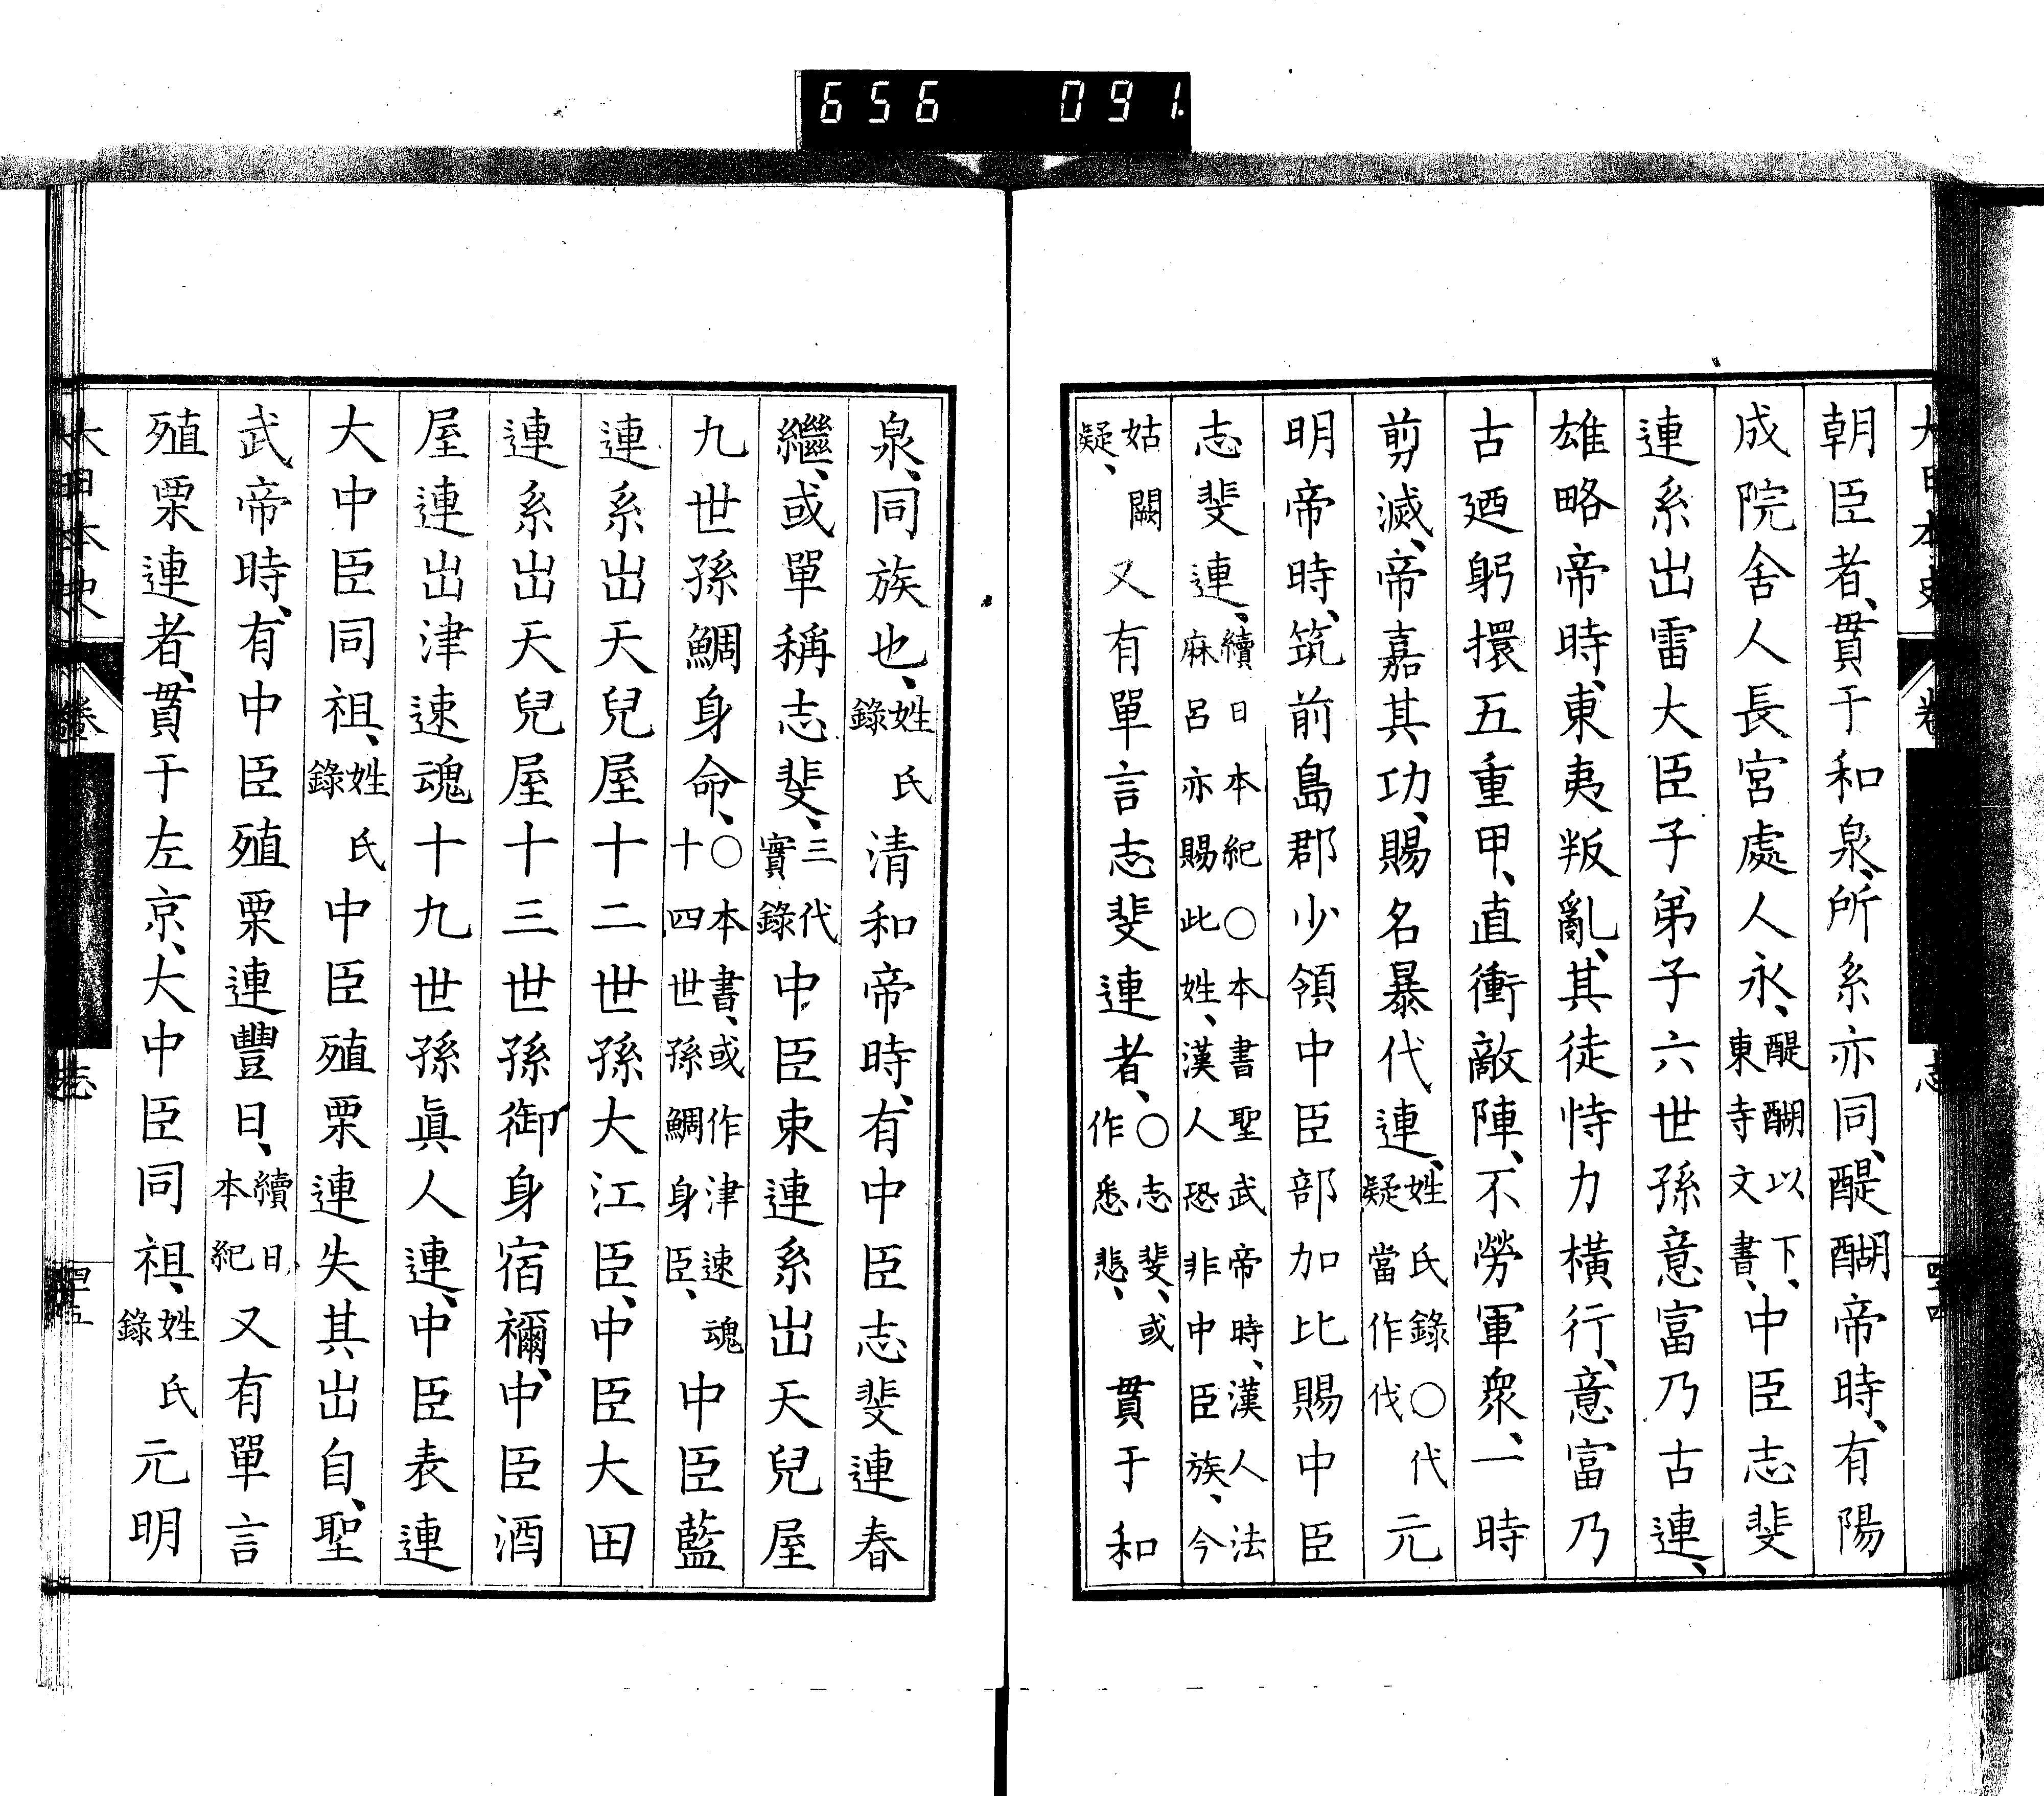 656 091
朝臣者、貫于和泉、所系亦同、醍醐帝時、有陽
成院舍人長宮處人永、醍醐以下、東寺文書、中臣志斐
連系出雷大臣子弟子六世孫意富乃古連、
雄略帝時、東夷叛亂、其徒恃力橫行、意富乃
古廼躬擐五重甲、直衝敵陣、不勞軍衆、一時
剪滅、帝嘉其功、賜名暴代連、姓氏錄〇代疑當作伐元
明帝時、筑前島郡少領中臣部加比賜中臣
志斐連、續日本紀〇本書聖武帝時、漢人法麻呂亦賜此姓、漢人恐非中臣族、今
姑闕疑、又有單言志斐連者、〇志斐、或作悉悲、貫于和
泉、同族也、姓氏錄清和帝時、有中臣志斐連春
繼、或單稱志斐、三代實錄中臣束連系出天兒屋
九世孫鯛身命、〇本書、或作津速魂十四世孫鯛身臣、中臣藍
連系出天兒屋十二世孫大江臣、中臣大田
連系出天兒屋十三世孫御身宿禰、中臣酒
屋連出津速魂十九世孫眞人連、中臣表連
大中臣同祖、姓氏錄中臣殖栗連失其出自、聖
武帝時、有中臣殖栗連豐日、續日本紀又有單言
殖栗連者、貫于左京、大中臣同祖、姓氏錄元明
大日本史 卷 志 四十五